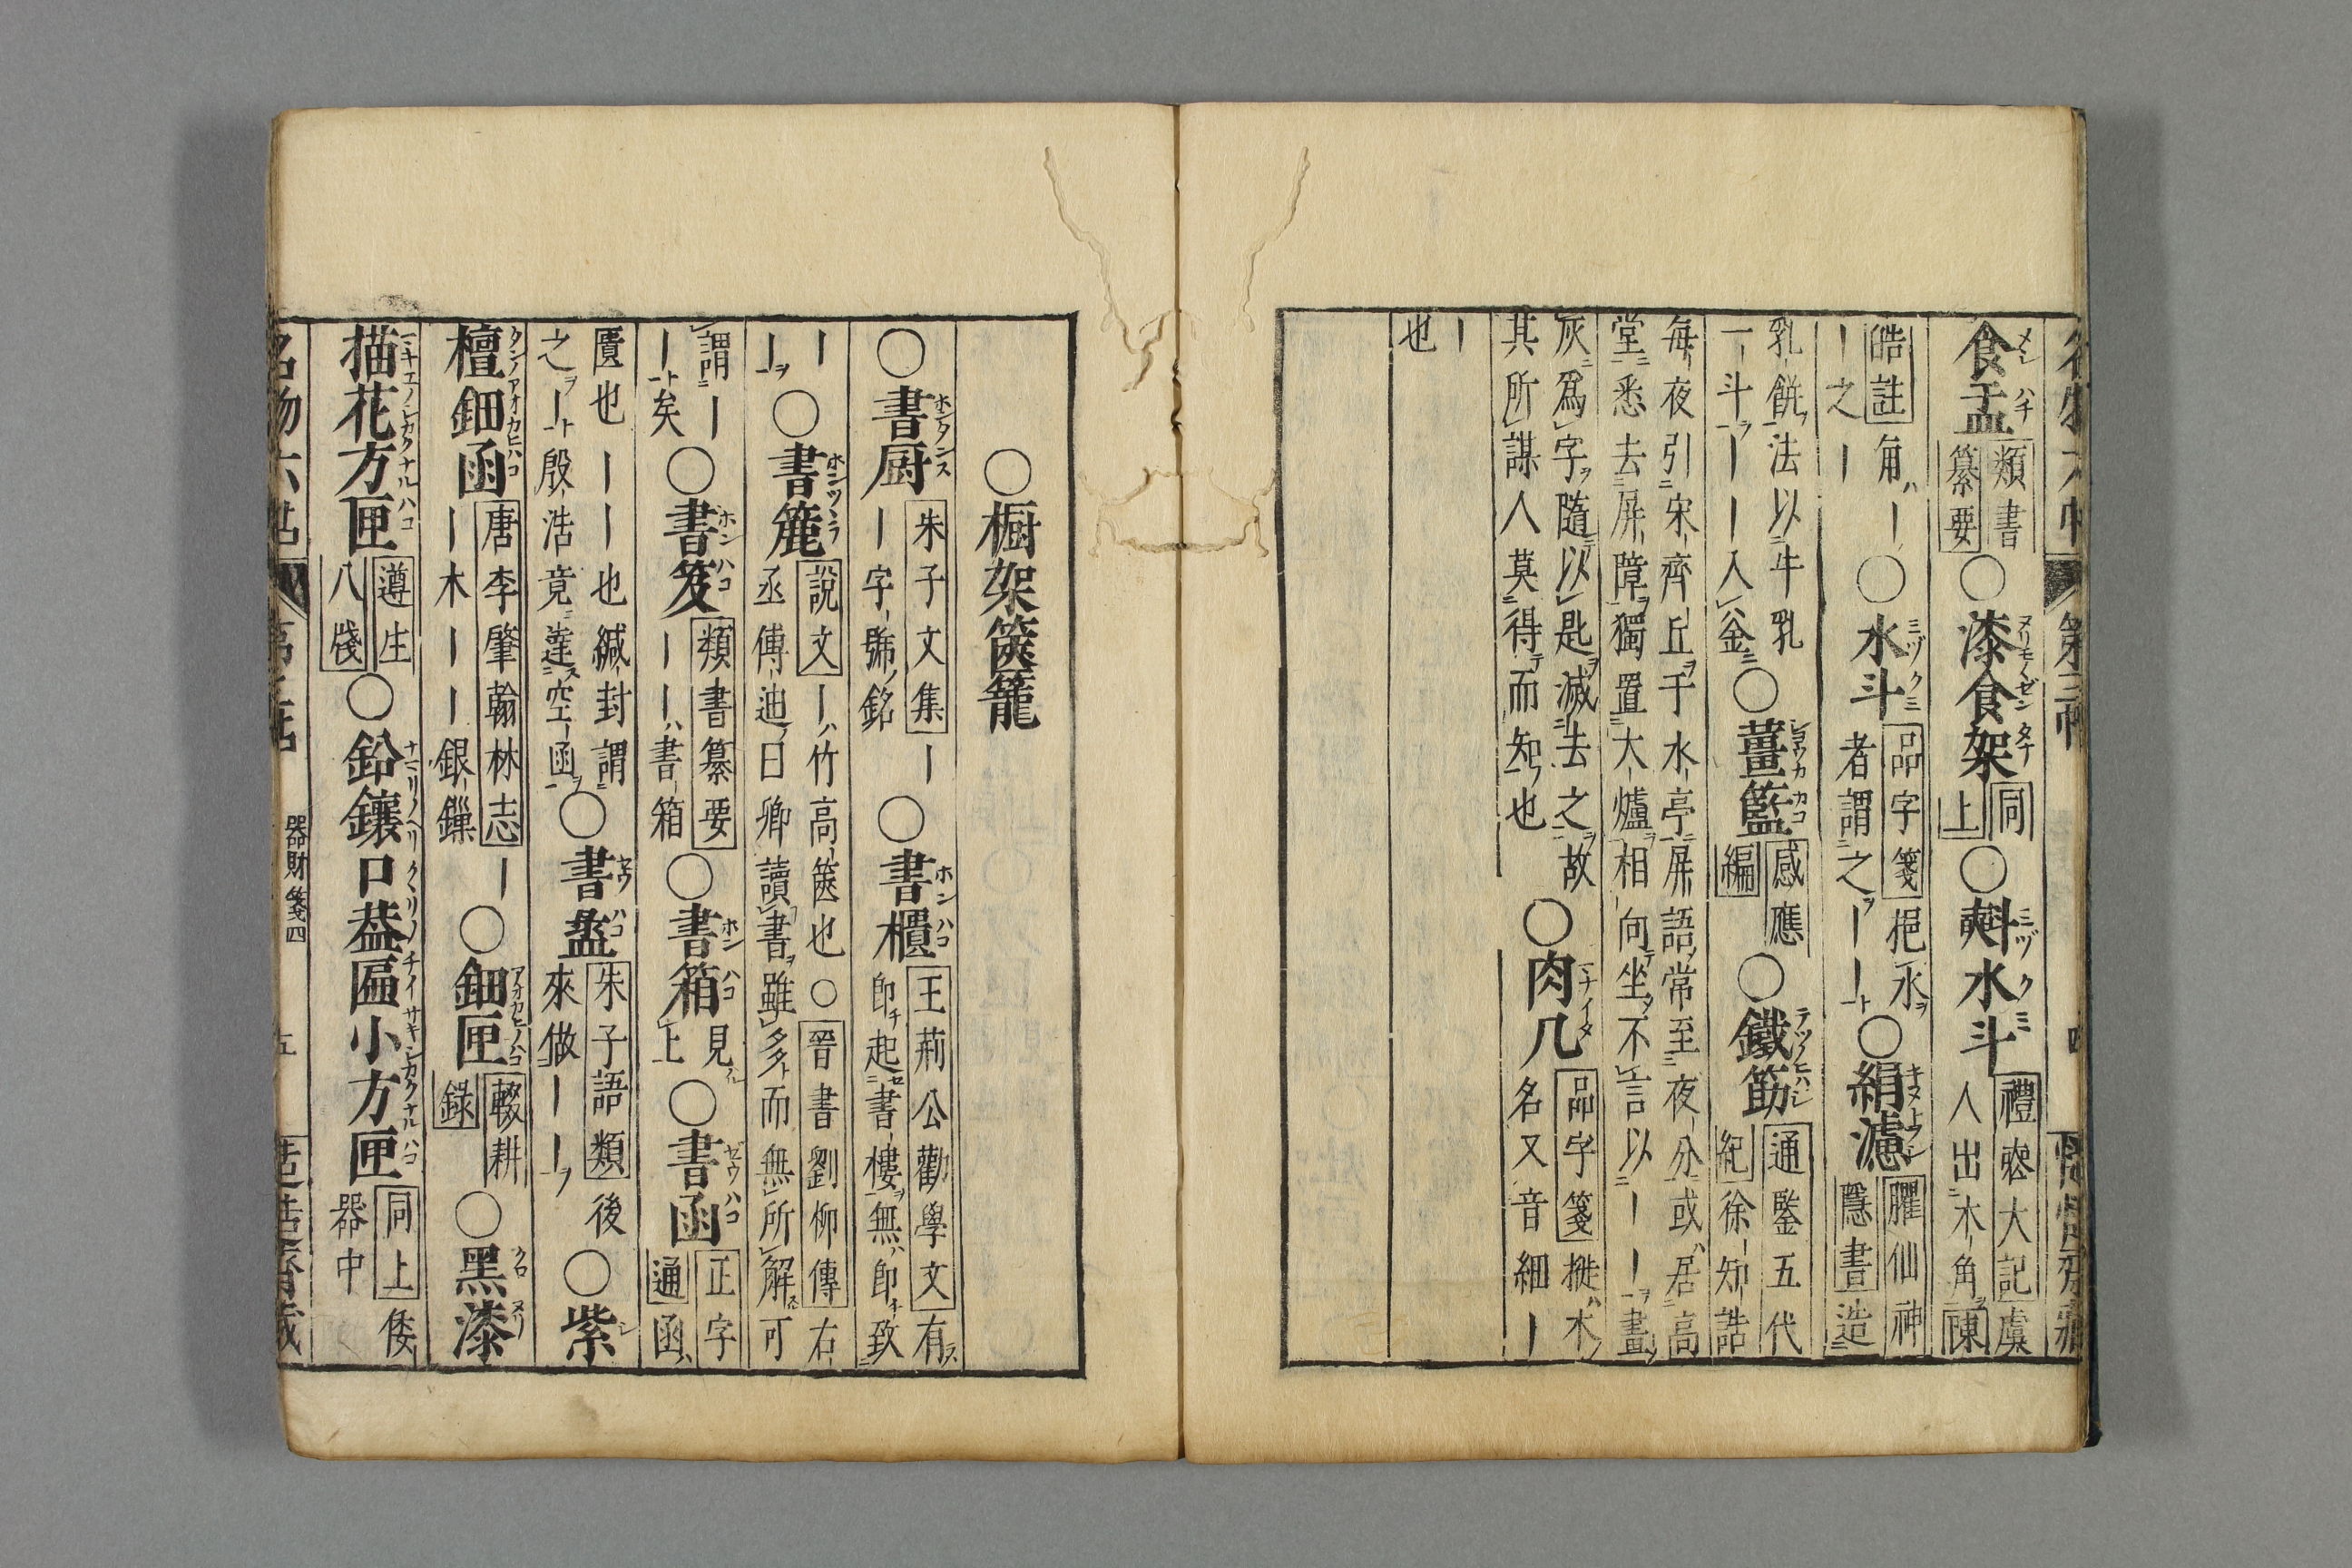 食盂 類書纂要 ○漆食架 同上 ○㪺水斗 禮喪大記 虞人出木角 陳
皓註 角ハ｜｜之｜ ○水斗 品字箋 挹水者謂之｜｜ ○絹濾 臞仙神隱書 造
乳餅法以牛乳一斗｜｜｜入釜 ○薑籃 感應編 ○鐵筯 通鑒五代紀 徐知誥
每夜引宋齊丘于水亭屏語常至夜分或居高
堂悉去屏障獨置大爐相向坐不言以｜｜畫
灰爲字隨以匙滅去之故
其所謀人莫得而知也 ○肉几 品字箋 樅木名又音細｜
｜也
○橱架篋籠
○書厨 朱子文集 ｜｜字號銘 ○書櫃 王荊公勸學文 有卽起書樓無卽致
｜｜ ○書簏 說文 ｜ハ竹高篋也○ 晉書劉柳傳 右丞傅迪曰卿讀書雖多而無所解可
謂｜｜矣 ○書笈 類書纂要 ｜｜ハ書箱 ○書箱 見上 ○書函 正字通 函
匱也｜｜也緘封謂之｜殷浩竟達空函 ○書盝 朱子語類 後來做｜｜ ○紫
檀鈿函 唐李肇翰林志 ｜｜木｜｜銀鏁 ○鈿匣 輟耕錄 ○黑漆
描花方匣 遵生八牋 ○鉛鑲口盝匾小方匣 同上 倭器中
器財箋四
五